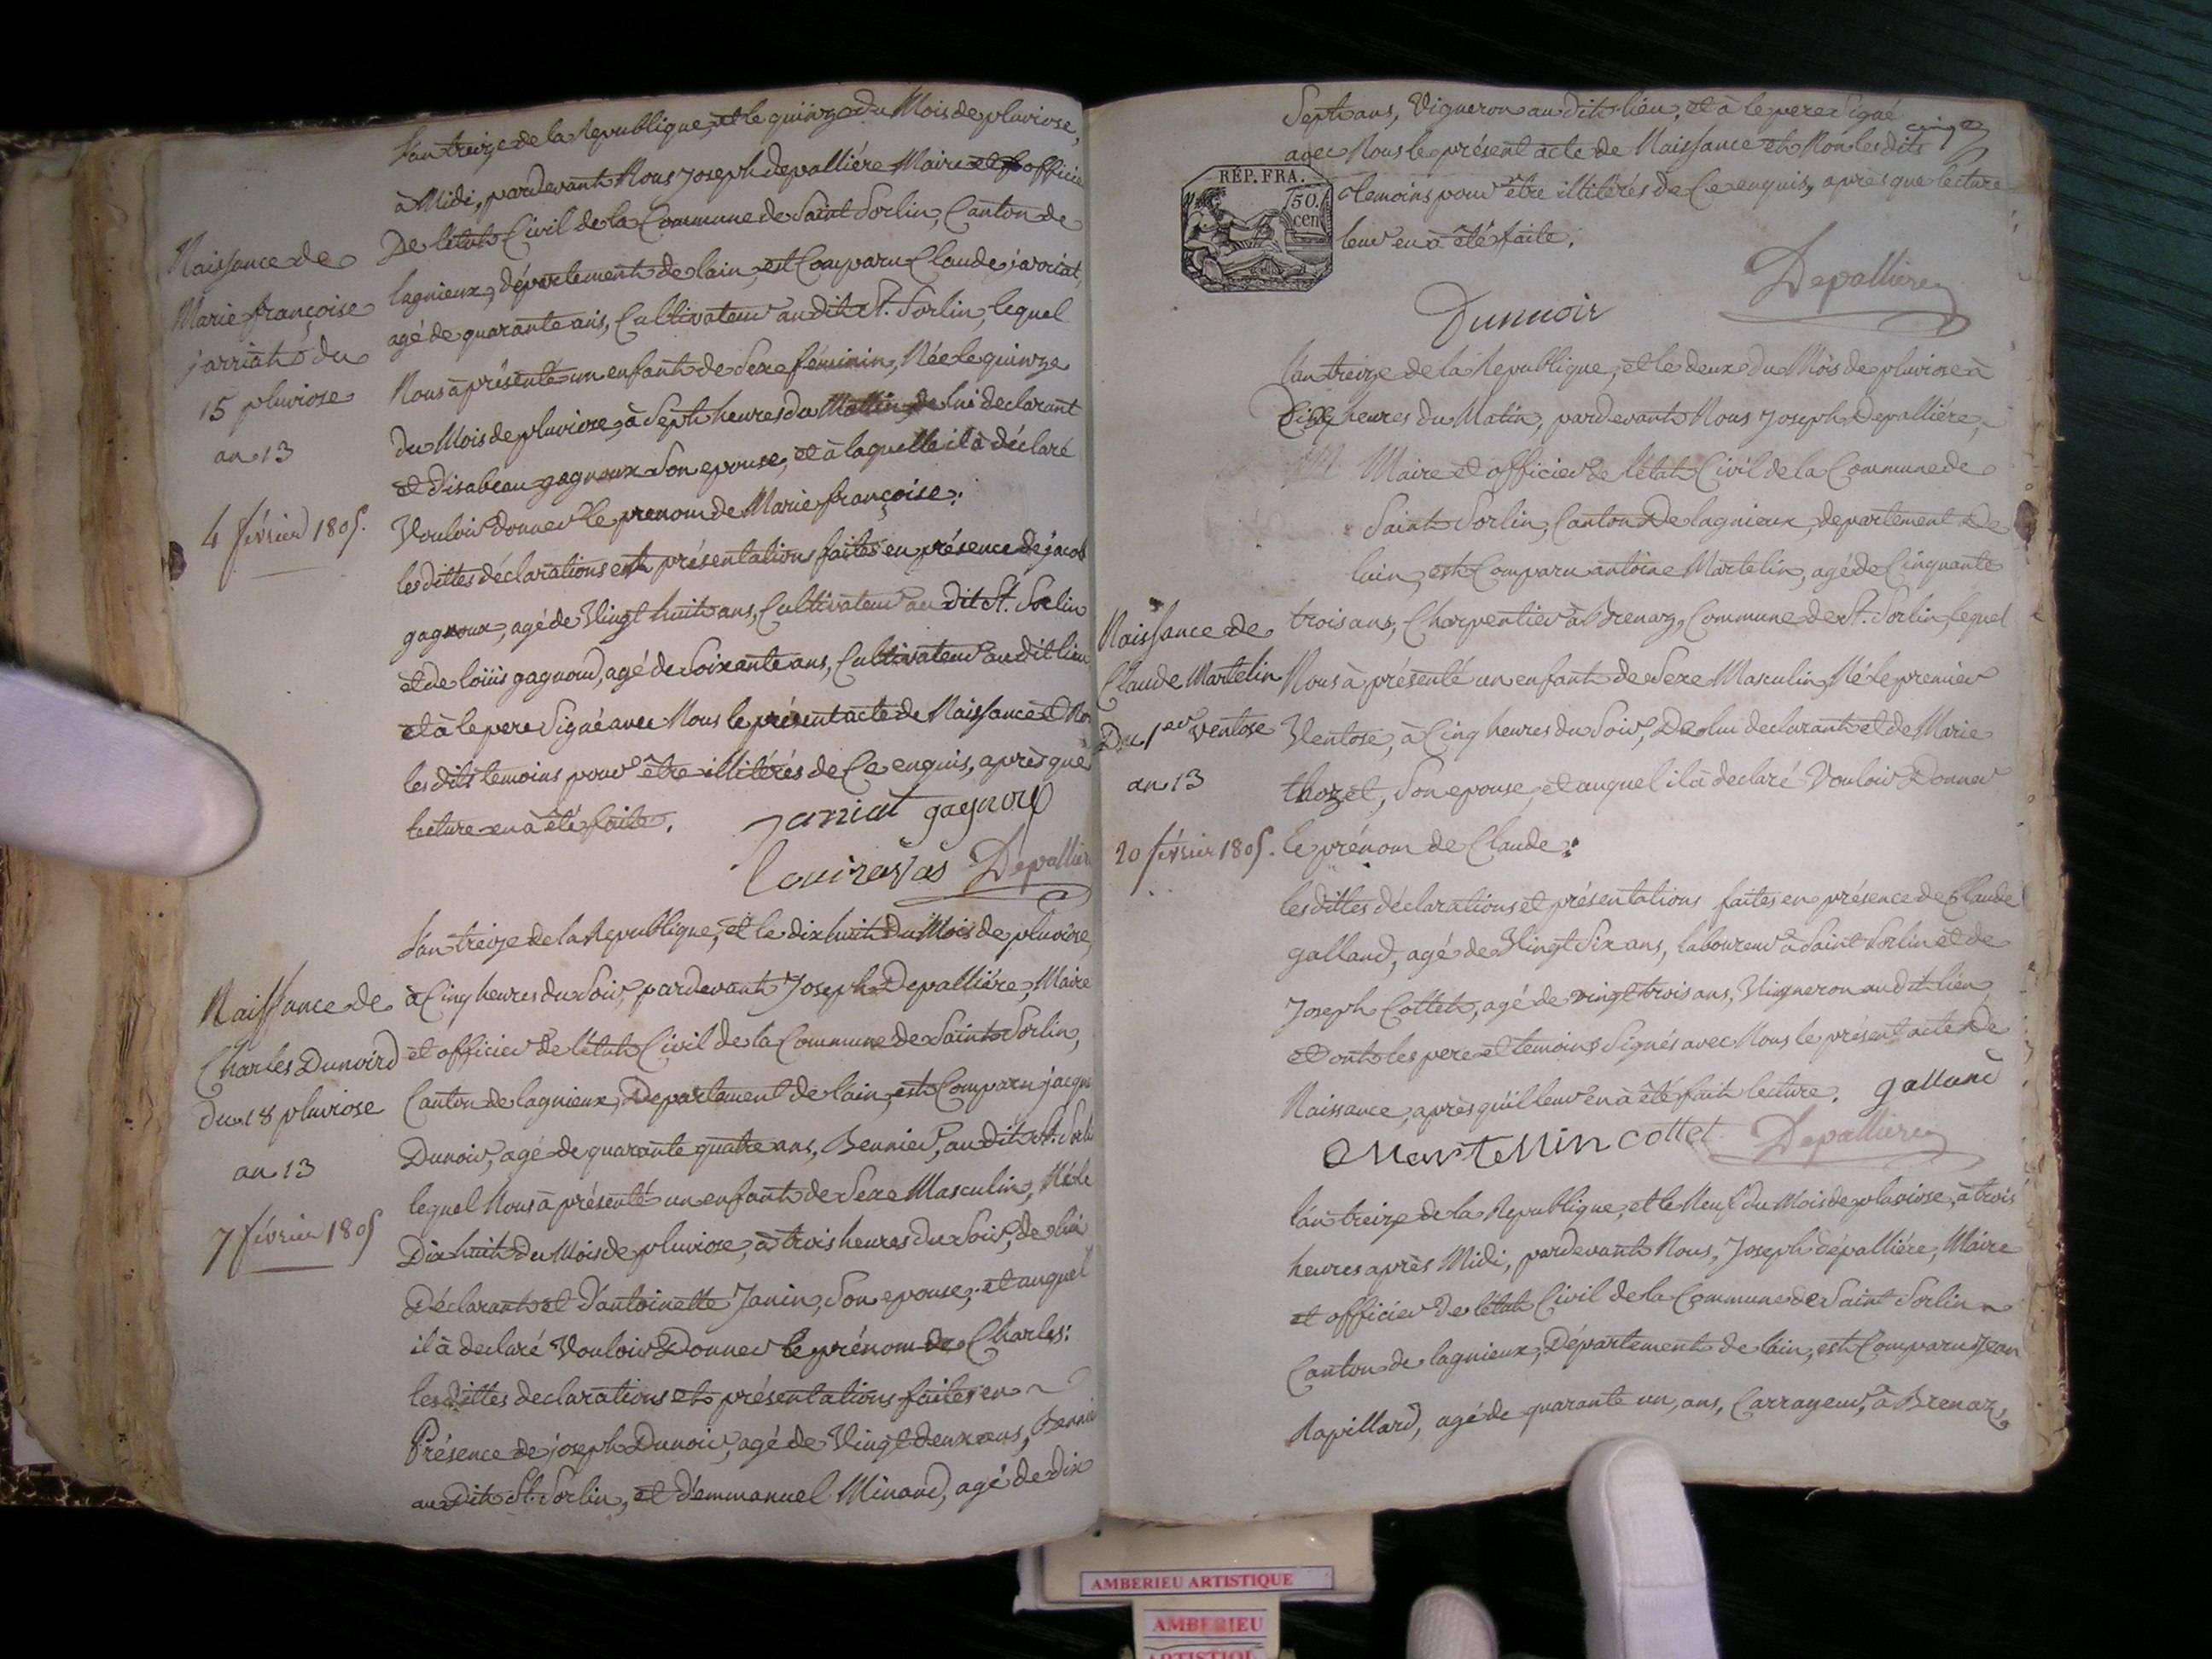 L'an treize de la Republique, et le quinze du Mois de pluviose,
à Midi, pardevant Nous Joseph depalliére Maire et officie
De l'état Civil de la Commune de Saint Sorlin, Canton de
lagnieux, département de lain, est Comparu Claude jarriat,
agé de quarante ans, Cultivateur au dit St. Sorlin, lequel
Nous à présenté un enfant de Sexe féminin, Née le quinze
du Mois de pluviose, à Sept heures du Mattin, de lui declarant
et d'isabeau gagnoux Son epouse, et à laquelle il à déclaré
Vouloir donner le prenom de Marie françoise.
les dittes déclarations et présentations faites en présence de jacob
gagnoux, agé de Vingt huit ans, Cultivateur au dit St. Sorlin
et de loüis gagnoud, agé de Soixante ans, Cultivateur au dit lieu
et à le pere Signé avec Nous le présent acte de Naissance et No
les dits temoins pour être illitérés de Ce enquis, après que
lecture en à été faite.
Jarriat gagnoux
Depallier
Naissance de
Marie françoise
jarriat du
15 pluviose
an 13
4 février 1805.
L'an treize de la Republique, et le dix huit Du Mois de pluviose,
à Cinq heures du Soir, pardevant Joseph Depalliére, Maire
et officier de l'état Civil de la Commune de Saint Sorlin,
Canton de lagnieux, Departement de lain, est Comparu jacque
Dunoir, agé de quarante quatre ans, Bennier, au dit St. Sorli
lequel Nous à présenté un enfant de Sexe Masculin, Né le
Dix huit du Mois de pluviose, à trois heures du Soir, de lui
Déclarant et d'antoinette Janin, Son epouse, et auquel
il à declaré Vouloir Donner le prénom de Charles.
les dittes declarations et présentations faites en
Présence de joseph Dunoir, agé de Vingt deux ans, Bennie
au Dit St. Sorlin, et d'emmanuel Minand, agé de dix
Naissance de
Charles Dunoird
du 18 pluviose
an 13
7 février 1805
Sept ans, Vigneron au dit lieu, et à le pere Signé
avec Nous le présent acte de Naissance et Non les dits
temoins pour être illitérés de Ce enquis, après que lecture
leur en à été faite.
RÉP. FRA.
50.
cen
Depalliere
Dunnoir
L'an treize de la Republique, et le deux du Mois de pluviose à
heures du Matin, pardevant Nous Joseph Depalliére,
Maire et officier de l'état Civil de la Commune de
Saint Sorlin, Canton De lagnieux, departement De
lain, est Comparu antoine Martelin, agé de Cinquante
trois ans, Charpentier à Brenaz, Commune de St. Sorlin, lequel
Nous à présenté un enfant de Sexe Masculin, Né le premier
Ventose, à Cinq heures du Soir, De lui declarant et de Marie
thozet, Son epouse, et auquel il à declaré Vouloir Donner
le prénom de Claude.
les dittes déclarations et présentations faites en présence de Claude
galland, agé de Vingt Six ans, laboureur à Saint Sorlin et de
Joseph Cottet, agé de vingt trois ans, Vigneron au dit lieu
et ont les pere et temoins Signés avec Nous le présent acte De
Naissance, après qu'il leur en à été fait lecture. galland
Martellin cottet Depalliere
Naissance de
Claude Martelin
Du 1er ventose
an 13
20 février 1805.
L'an treize de la Republique, et le Neuf du Mois de pluviose, à trois
heures après Midi, pardevant Nous, Joseph dépalliére, Maire
et officier De l'état Civil de la Commune de Saint Sorlin
Canton de lagnieux, Département de lain, est Comparu Jean
Rapillard, agé de quarante un, ans, Carrayeur, à Brenaz,
AMBERIEU ARTISTIQUE
AMBERIEU
ARTISTIQU